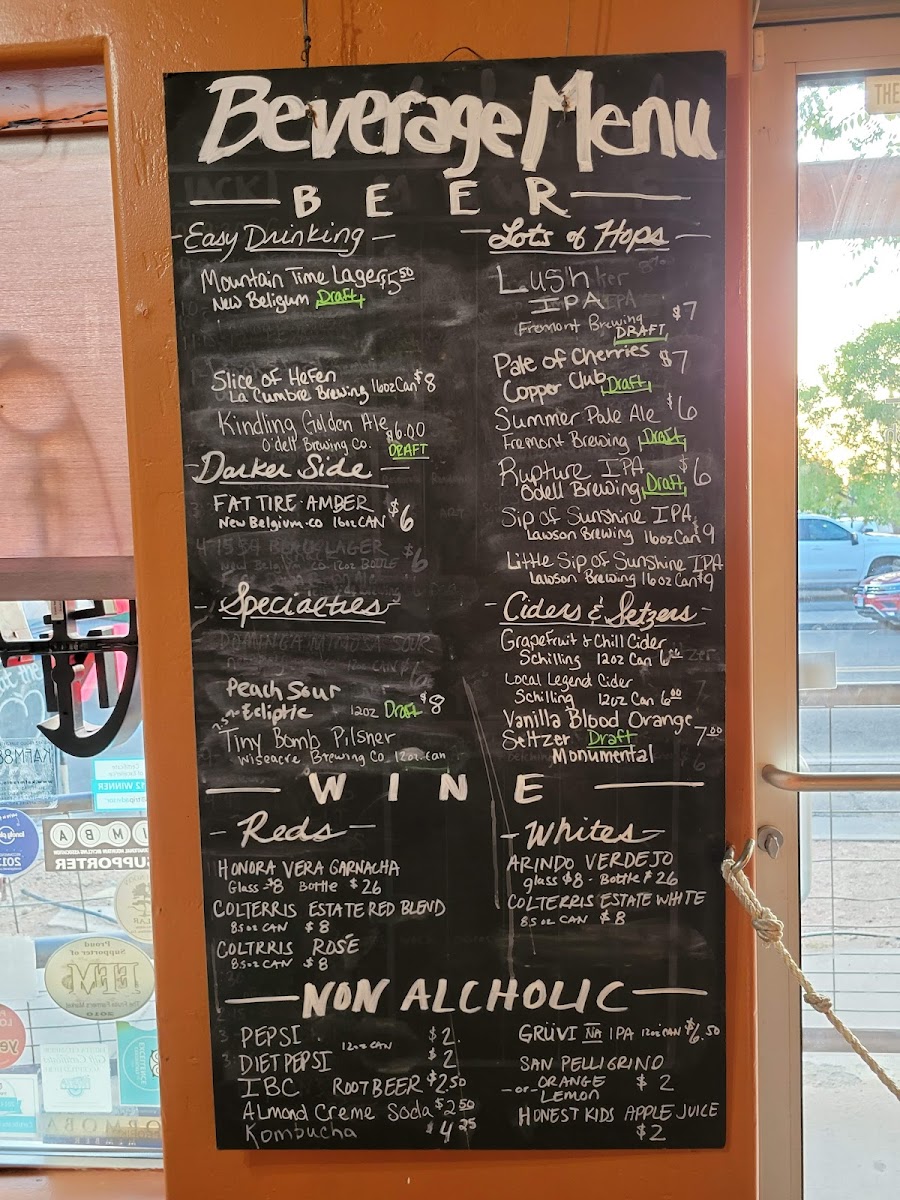 Beverage Menu
BEER
Easy Drinking
Mountain Time Lager $5.50
New Beligum Draft
Slice of Hefen
La Cumbre Brewing 16oz Can $8
Kindling Golden Ale
O'dell Brewing Co. $6.00
DRAFT
Darker Side
FAT TIRE · AMBER
New Belgium co 16oz CAN $6
1554 BLACK LAGER
New Belgium co 12oz BOTTLE $6
Specialties
Peach Sour
Ecliptic 12oz Draft $8
Tiny Bomb Pilsner
Wiseacre Brewing Co 12oz can
Lots of Hops
Lush
IPA
Fremont Brewing $7
DRAFT
Pale of Cherries $7
Copper Club Draft
Summer Pale Ale $6
Fremont Brewing Draft
Rupture IPA $6
Odell Brewing Draft
Sip of Sunshine IPA
Lawson Brewing 16oz Can $9
Little Sip of Sunshine IPA
Lawson Brewing 16oz Can $9
Ciders & Setzers
Grapefruit & Chill Cider
Schilling 12oz Can 6.00
Local Legend Cider
Schilling 12oz Can 6.00
Vanilla Blood Orange
Seltzer Draft 7.00
Monumental
WINE
Reds
HONORA VERA GARNACHA
Glass $8 Bottle $26
COLTERRIS ESTATE RED BLEND
8.5oz CAN $8
COLTRRIS ROSÉ
8.5oz CAN $8
Whites
ARINDO VERDEJO
glass $8 - Bottle $26
COLTERRIS ESTATE WHITE
8.5oz CAN $8
NON ALCHOLIC
PEPSI $2
12oz CAN
DIET PEPSI $2
IBC ROOT BEER $2.50
Almond Creme Soda $2.50
Kombucha $4.25
GRÜVI NA IPA 12oz CAN $6.50
SAN PELLIGRINO
ORANGE
-or- $2
LEMON
HONEST KIDS APPLE JUICE
$2
THE
KAFM88
WINNER
IMBA
SUPPORTER
Proud
Supporter of
2010